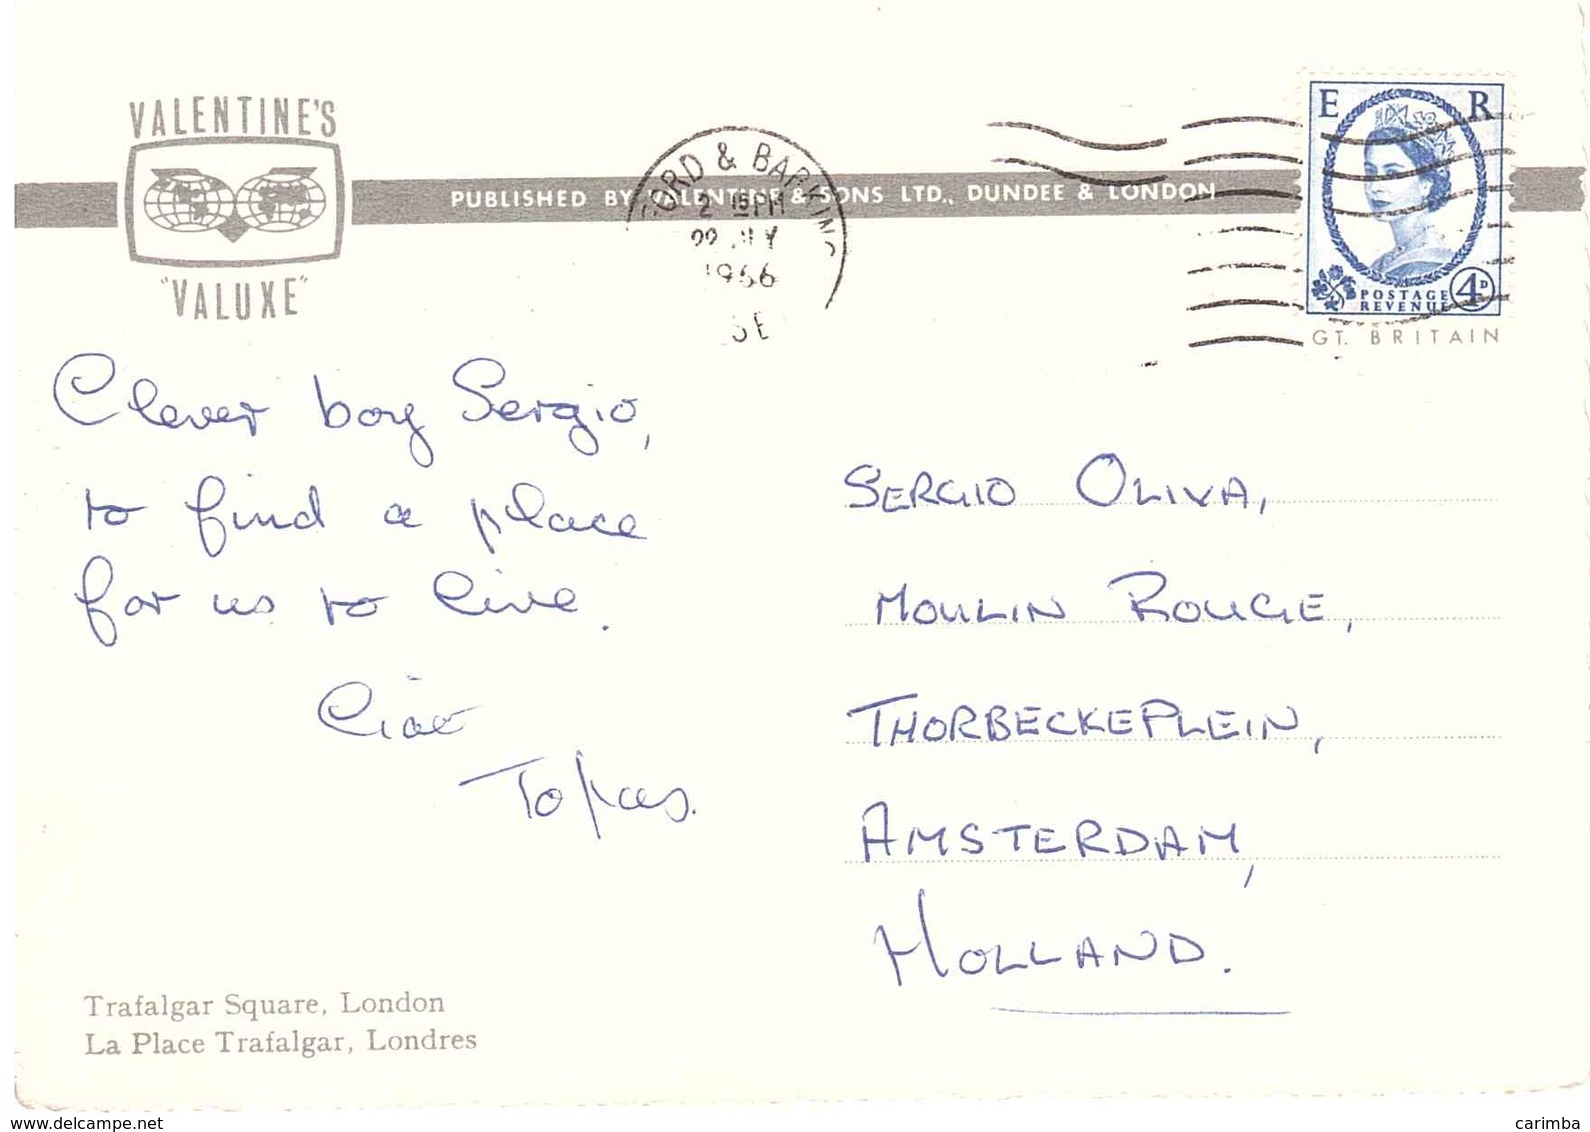 VALENTINE'S
"VALUXE"
PUBLISHED BY VALENTINE & SONS LTD., DUNDEE & LONDON
FORD & BARKING
2 15 PM
1966
E R
POSTAGE
REVENUE
4D
GT. BRITAIN
Clever boy Sergio,
to find a place
for us to live.
Ciao
SERGIO OLIVA,
MOULIN ROUGE,
THORBECKEPLEIN,
AMSTERDAM,
HOLLAND.
Trafalgar Square, London
La Place Trafalgar, Londres
www.delcampe.net
carimba